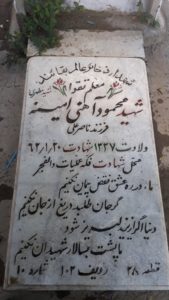 معلم تقوا
شهید محمود آهنی امینه
فرزند ناصر علی
ولادت ۱۳۳۷ شهادت ۲۰/۱/۶۲
محل شهادت فکه عملیات والفجر
ما در ره عشق نقض پیمان نکنیم
گر جان طلبد دریغ از جان نکنیم
دنیا اگر از یزید لبریز شود
ما پشت به سالار شهیدان نکنیم
قطعه ۲۸ ردیف ۱۰۳ شماره ۱۰